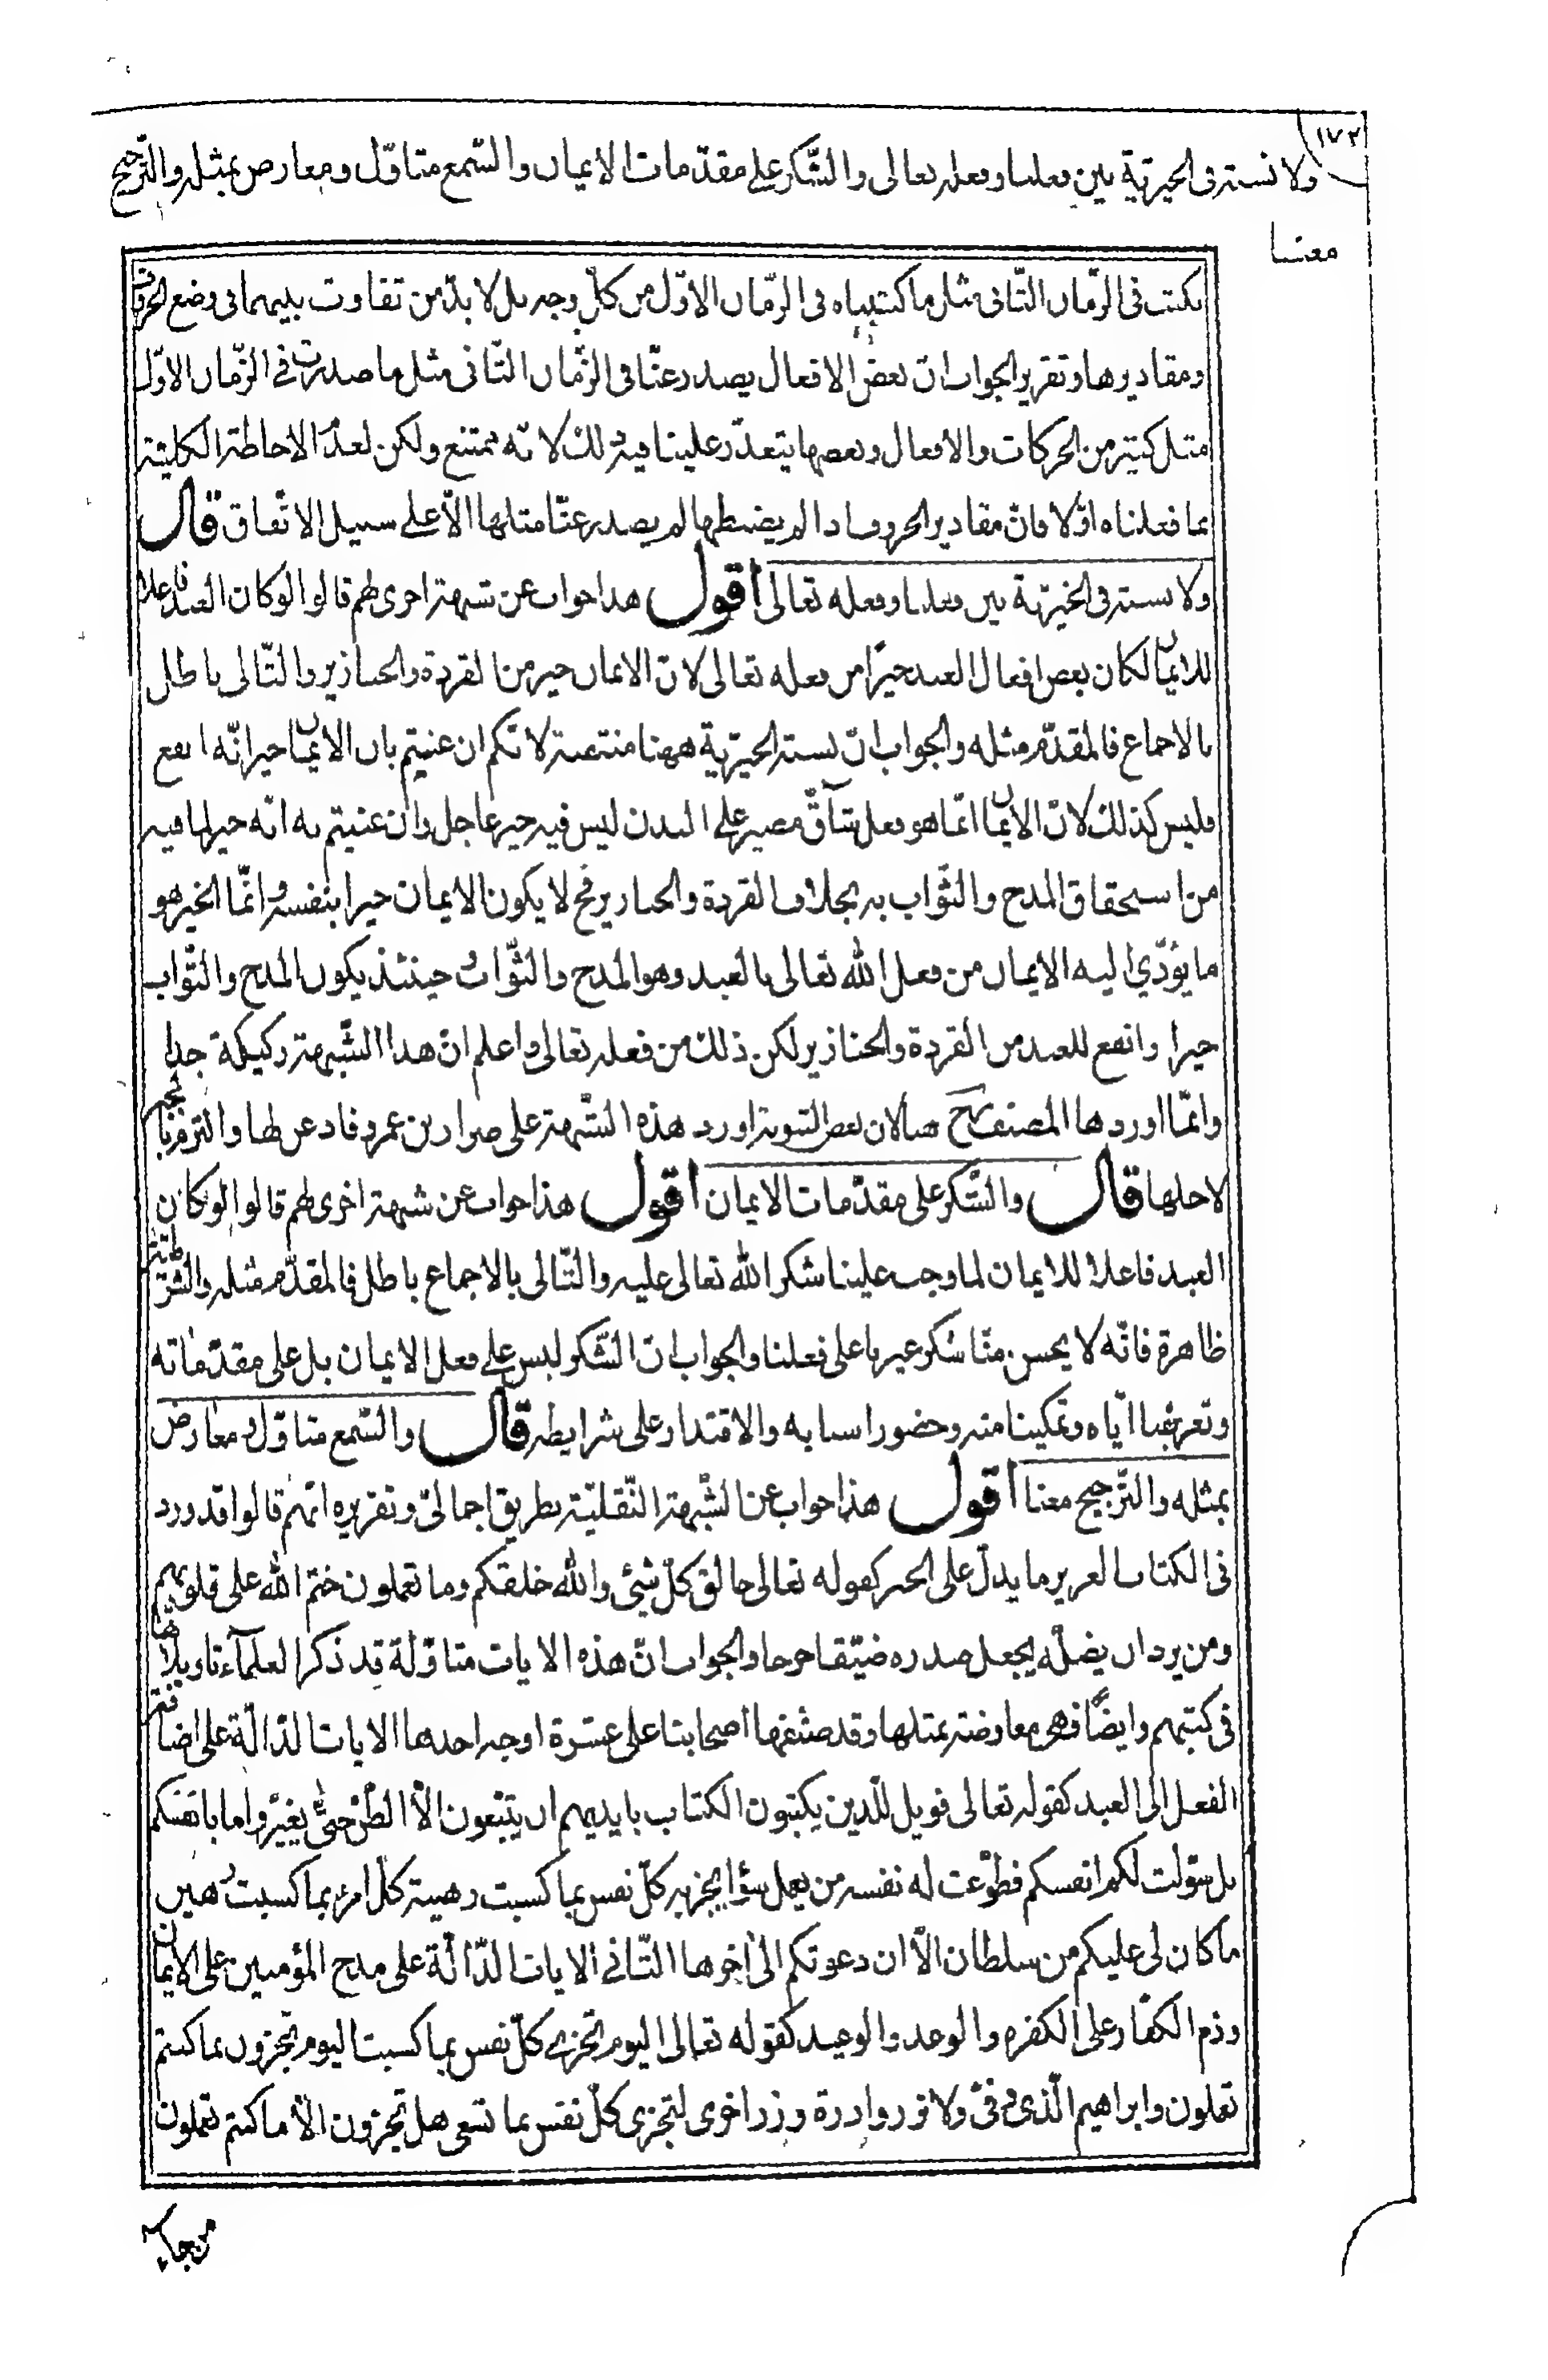 ١٧٢
ولا نسبة فى الخيرية بين فعلنا وفعله تعالى والشكر على مقدمات الايمان والسمع متاوّل ومعارض بمثله والترجيح
معنا
نكتب فى الزمان الثانى مثل ما كتبناه فى الزمان الاوّل من كل وجه بل لا بد من تفاوت بينهما فى وضع الحروف
ومقاديرها وتقرير الجواب ان بعض الافعال يصدر عنا فى الزمان الثانى مثل ما صدرت فى الزمان الاول
مثل كثير من الحركات والافعال وبعضها يتعذر علينا فيه ذلك لا نه ممتنع ولكن لعدم الاحاطة الكلية
بما فعلناه اولا فان مقادير الحروف اذا لم يضبطها لم يصدر عنا مثلها الا على سبيل الاتفاق قال
ولا نسبة فى الخيرية بين فعلنا وفعله تعالى اقول هذا جواب عن شبهة اخرى لهم قالوا لو كان العبد فاعلا
للايمان لكان بعض افعال العبد خيرا من فعله تعالى لان الايمان خير من القردة والخنازير والتالى باطل
بالاجماع فالمقدم مثله والجواب ان نسبة الخيرية ههنا منتفية لانكم ان عنيتم بان الايمان خير انه انفع
فليس كذلك لان الايمان انما هو فعل شاق مضر على البدن ليس فيه خير عاجل وان عنيتم به انه خير لما فيه
من استحقاق المدح والثواب به بخلاف القردة والخنازير فح لا يكون الايمان خيرا بنفسه وانما الخير هو
ما يؤدي اليه الايمان من فعل الله تعالى بالعبد وهو المدح والثواب و حينئذ يكون المدح والثواب
خيرا وانفع للعبد من القردة والخنازير لكن ذلك من فعله تعالى واعلم ان هذا الشبهة ركيكة جدا
وانما اوردها المصنف رح هنا لان بعض الثنوية اورد هذه الشبهة على ضرار بن عمرو فاذعن لها والتزم بالجبر
لاجلها قال والشكر على مقدمات الايمان اقول هذا جواب عن شبهة اخرى لهم قالوا لو كان
العبد فاعلا للايمان لما وجب علينا شكر الله تعالى عليه والتالى بالاجماع باطل فالمقدم مثله والشرطية
ظاهرة فانه لا يحسن منا شكر غيرنا على فعلنا والجواب ان الشكر ليس على فعل الايمان بل على مقدماته
وتعريفنا اياه وتمكيننا منه وحضور اسبابه والاقتدار على شرايطه قال والسمع متاول ومعارض
بمثله والترجيح معنا اقول هذا جواب عن الشبهة النقلية بطريق اجمالى وتقريره انهم قالوا قد ورد
فى الكتاب العزيز ما يدل على الجبر كقوله تعالى خالق كل شئ والله خلقكم وما تعملون ختم الله على قلوبهم
ومن يرد ان يضله يجعل صدره ضيقا حرجا والجواب ان هذه الايات متاولة قد ذكر العلماء تاويلاتها
فى كتبهم وايضا فهى معارضة بمثلها وقد صنفها اصحابنا على عشرة اوجه احدها الايات الدالة على اضافة
الفعل الى العبد كقوله تعالى فويل للذين يكتبون الكتاب بايديهم ان يتبعون الا الظن حتى يغيروا ما بانفسكم
بل سولت لكم انفسكم فطوعت له نفسه من يعمل سوا يجز به كل نفس بما كسبت رهينة كل امرء بما كسبت رهين
ما كان لى عليكم من سلطان الا ان دعوتكم الى اخرها الثانى الايات الدالة على مدح المؤمنين على الايمان
وذم الكفار على الكفر والوعد والوعيد كقوله تعالى اليوم تجزى كل نفس بما كسبت اليوم تجزون بما كنتم
تعملون وابراهيم الذى وفى ولا تزر وازرة وزر اخرى لتجزى كل نفس بما تسعى هل تجزون الا ما كنتم تعملون
من جاء